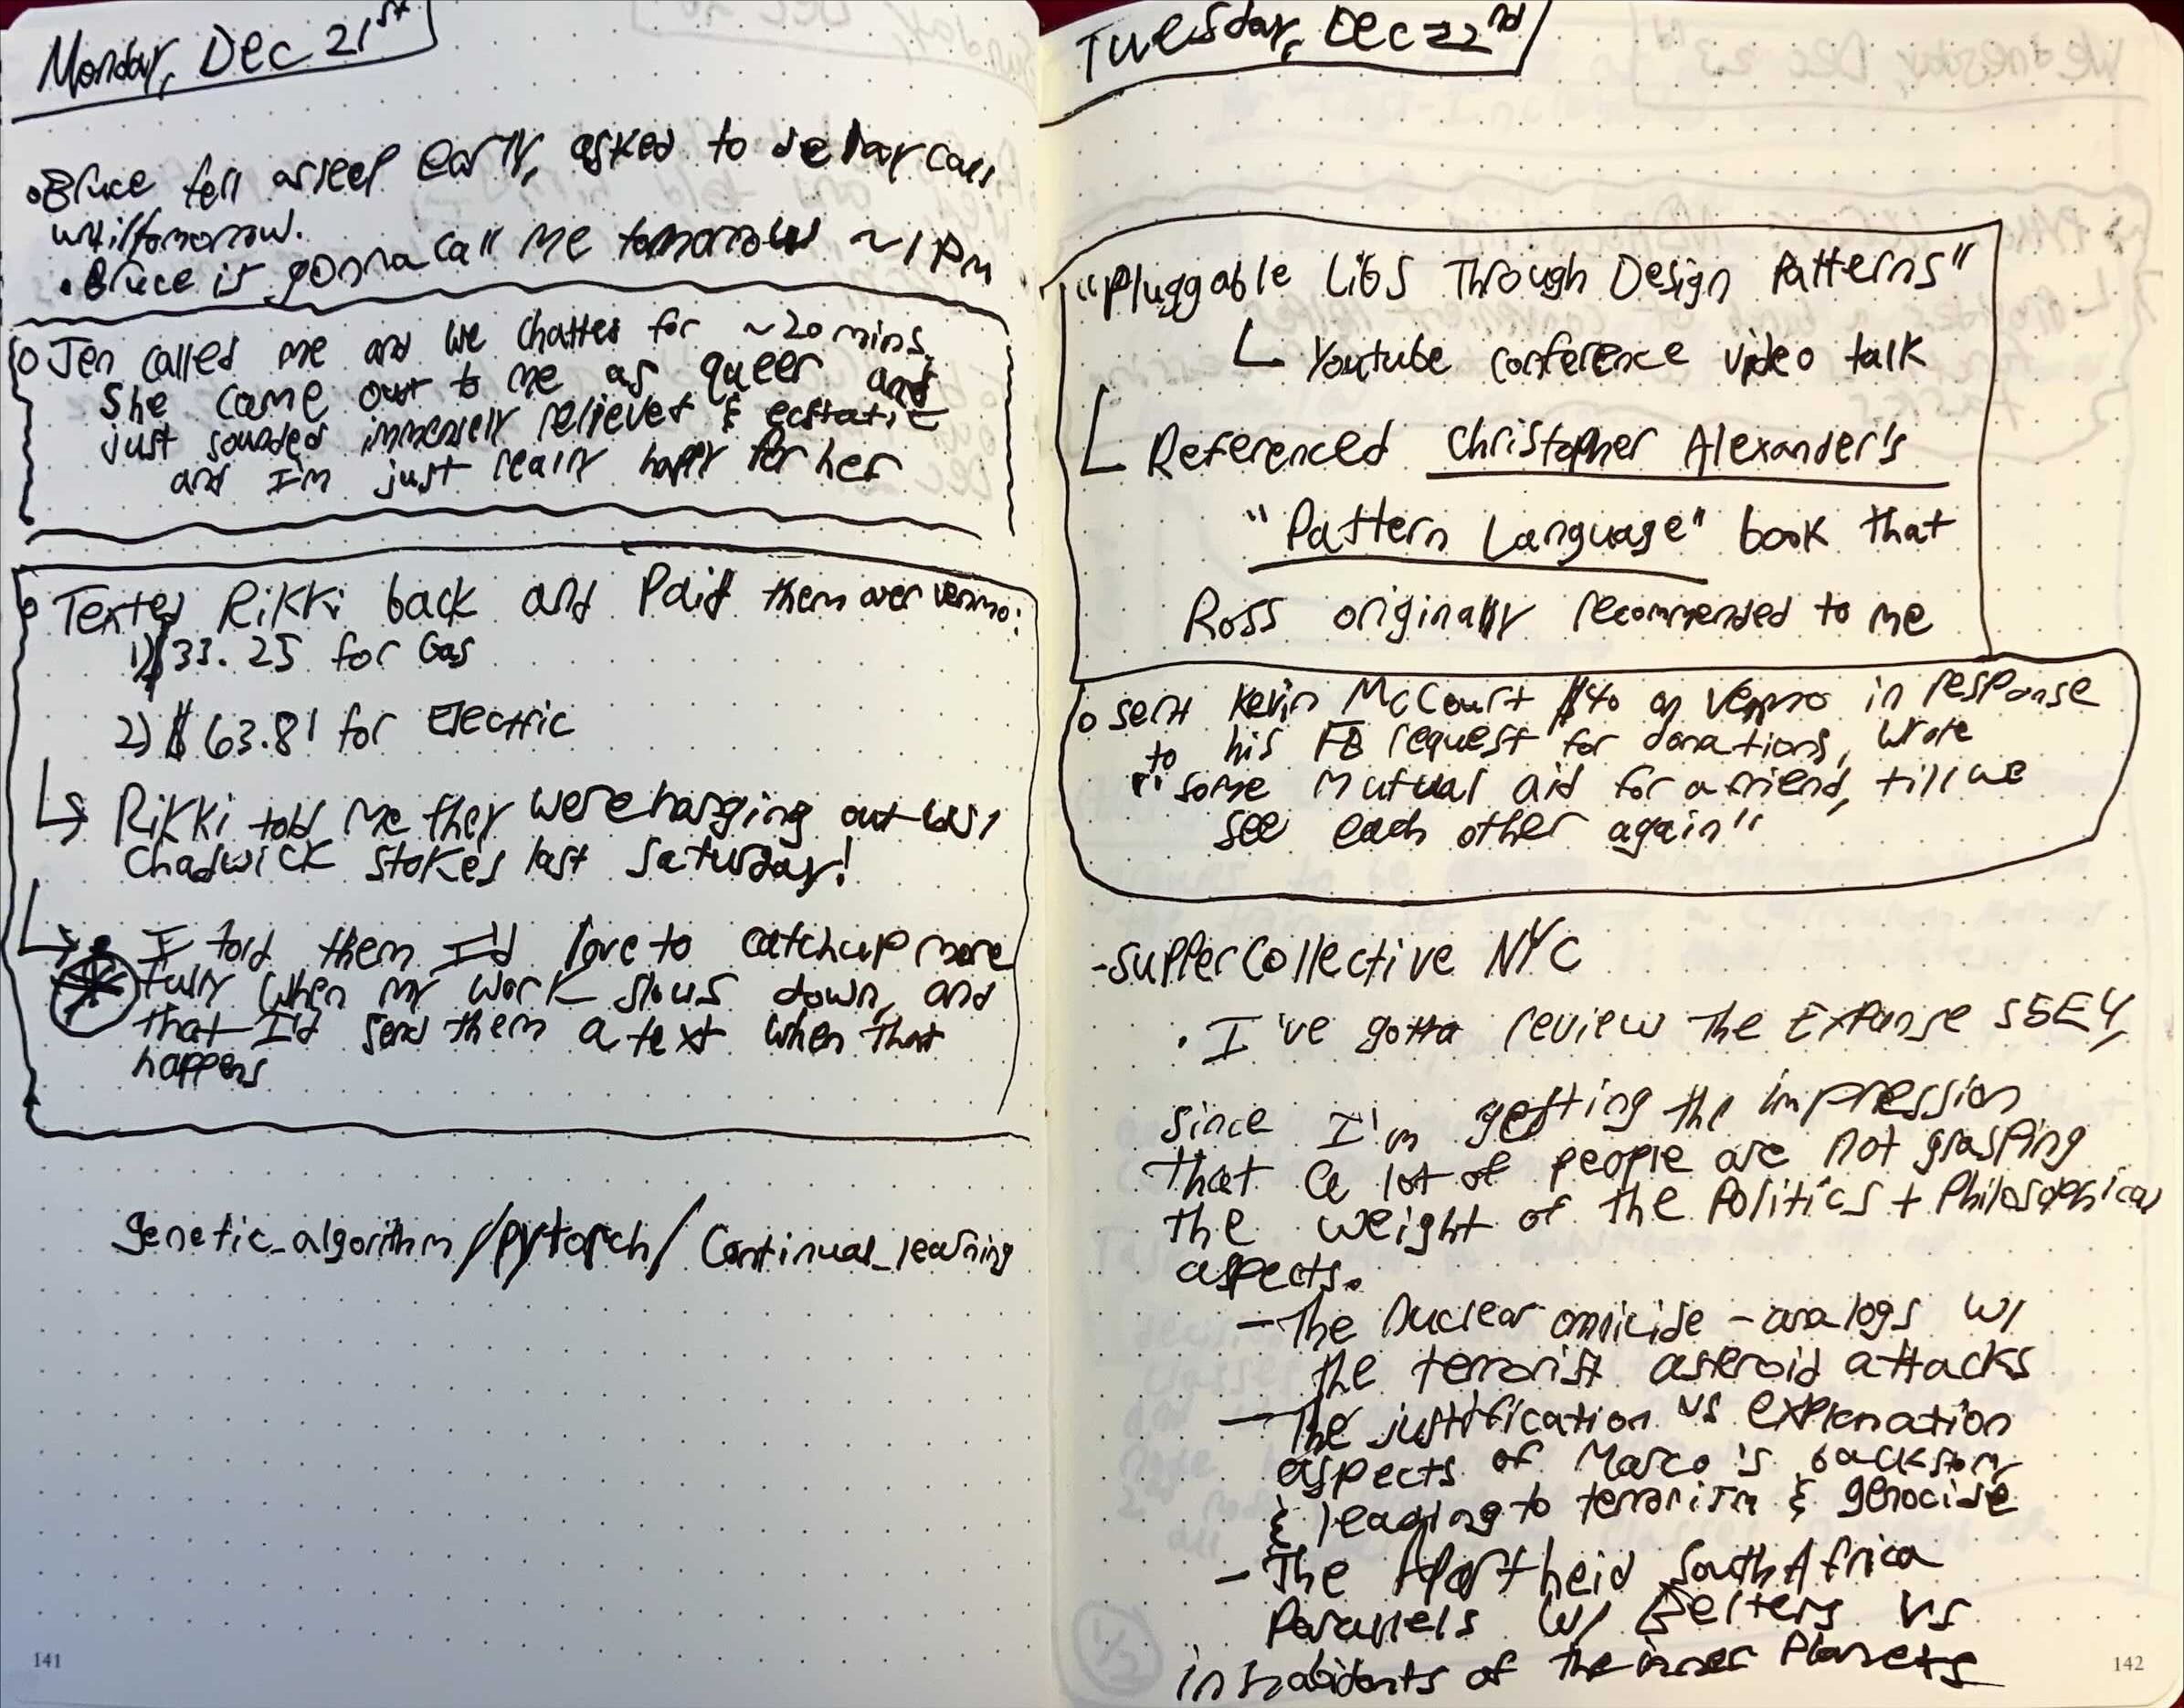 Monday, Dec 21st
Bruce fell asleep early, asked to delay call
until tomorrow.
Bruce is gonna call me tomorrow ~1pm
Jen called me and we chatted for ~20 mins.
She came out to me as queer and
just sounded immensely relieved & ecstatic
and I'm just really happy for her
Texted Rikki back and Paid them over venmo:
1) $33.25 for Gas
2) $63.81 for Electric
Rikki told me they were hanging out w/
Chadwick Stokes last Saturday!
I told them I'd love to catchup more
fully when my work slows down, and
that I'd send them a text when that
happens
genetic_algorithm/pytorch/continual_learning
141
Tuesday, Dec 22nd
"Pluggable Libs Through Design Patterns"
Youtube conference video talk
Referenced Christopher Alexander's
"Pattern Language" book that
Ross originally recommended to me
Sent Kevin McCourt $40 on Venmo in response
to his FB request for donations, wrote
"some mutual aid for a friend, till we
see each other again"
-Supper Collective NYC
· I've gotta review The Expanse S5E4,
since I'm getting the impression
that a lot of people are not grasping
the weight of the Politics + Philosophical
aspects.
- The Nuclear omnicide - analogs w/
the terrorist asteroid attacks
- The justification vs explanation
aspects of Marco's backstory
& leading to terrorism & genocide
- The Apartheid South Africa
Parallels w/ Belters vs
inhabitants of the inner Planets
142